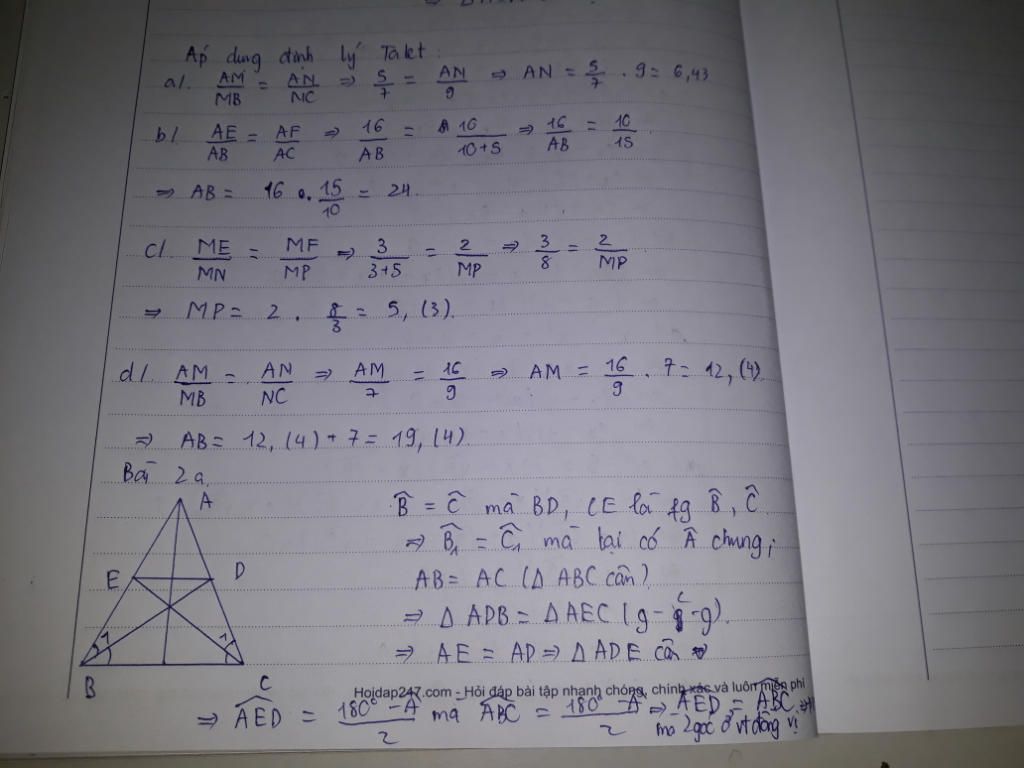 Áp dụng định lý Talet:
a). AM/MB = AN/NC ⇒ 5/7 = AN/9 ⇒ AN = 5/7 . 9 = 6,43
b). AE/AB = AF/AC ⇒ 16/AB = 10/10+5 ⇒ 16/AB = 10/15
⇒ AB = 16 . 15/10 = 24.
c). ME/MN = MF/MP ⇒ 3/3+5 = 2/MP ⇒ 3/8 = 2/MP
⇒ MP = 2 . 8/3 = 5,(3).
d). AM/MB = AN/NC ⇒ AM/7 = 16/9 ⇒ AM = 16/9 . 7 = 12,(4)
⇒ AB = 12,(4) + 7 = 19,(4)
Bài 2a,
A
E D
1 1
B C
B̂ = Ĉ mà BD, CE là fg B̂, Ĉ
⇒ B̂₁ = Ĉ₁ mà lại có Â chung;
AB = AC (Δ ABC cân)
⇒ Δ ADB = Δ AEC (g-c-g).
⇒ AE = AD ⇒ Δ ADE cân
Hoidap247.com - Hỏi đáp bài tập nhanh chóng, chính xác và luôn miễn phí
⇒ AED = 180° - Â/2 mà ABC = 180° - Â/2 ⇒ AED = ABC
mà 2 góc ở vt đồng vị